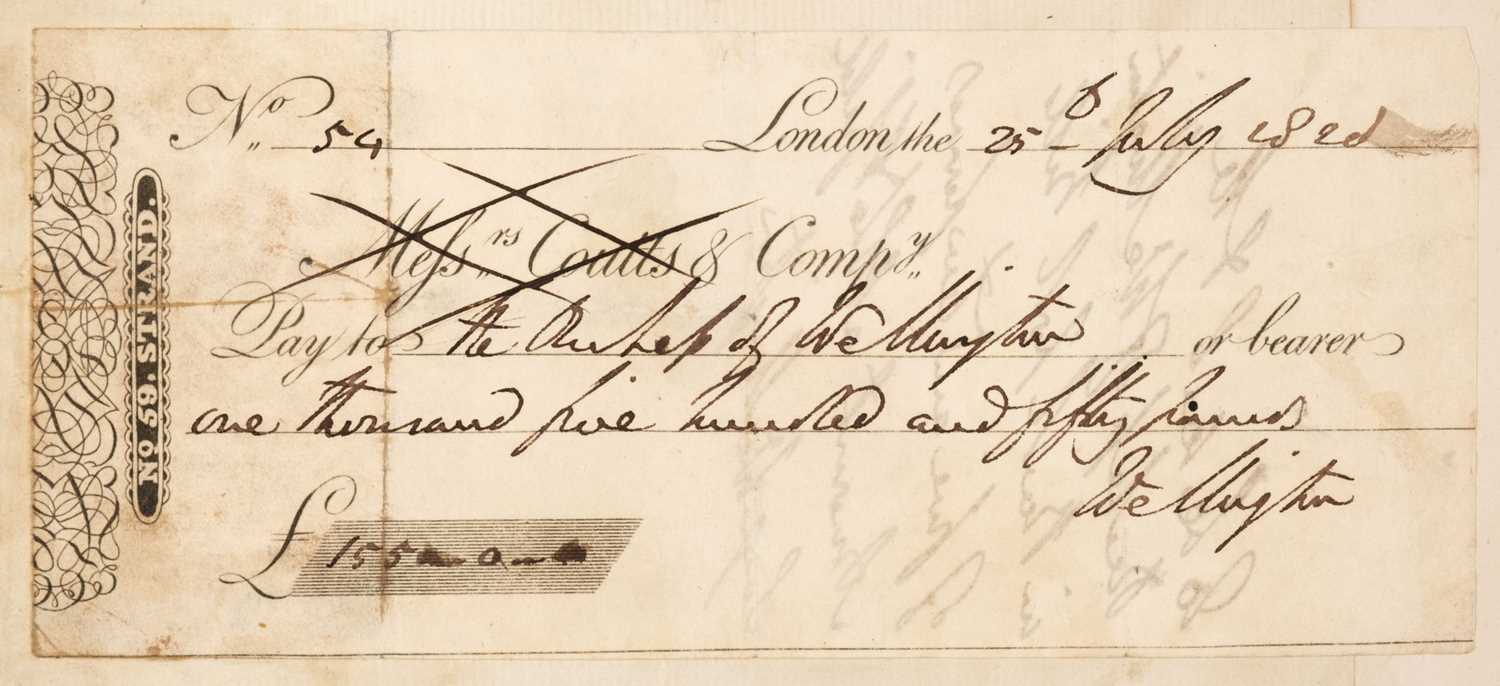 No. 59. STRAND.
No. 54 London the 25 July
Messrs Coutts & Compy.
Pay to the Duchess of Wellington or bearer
one thousand five hundred and fifty pounds
Wellington
£ 1550